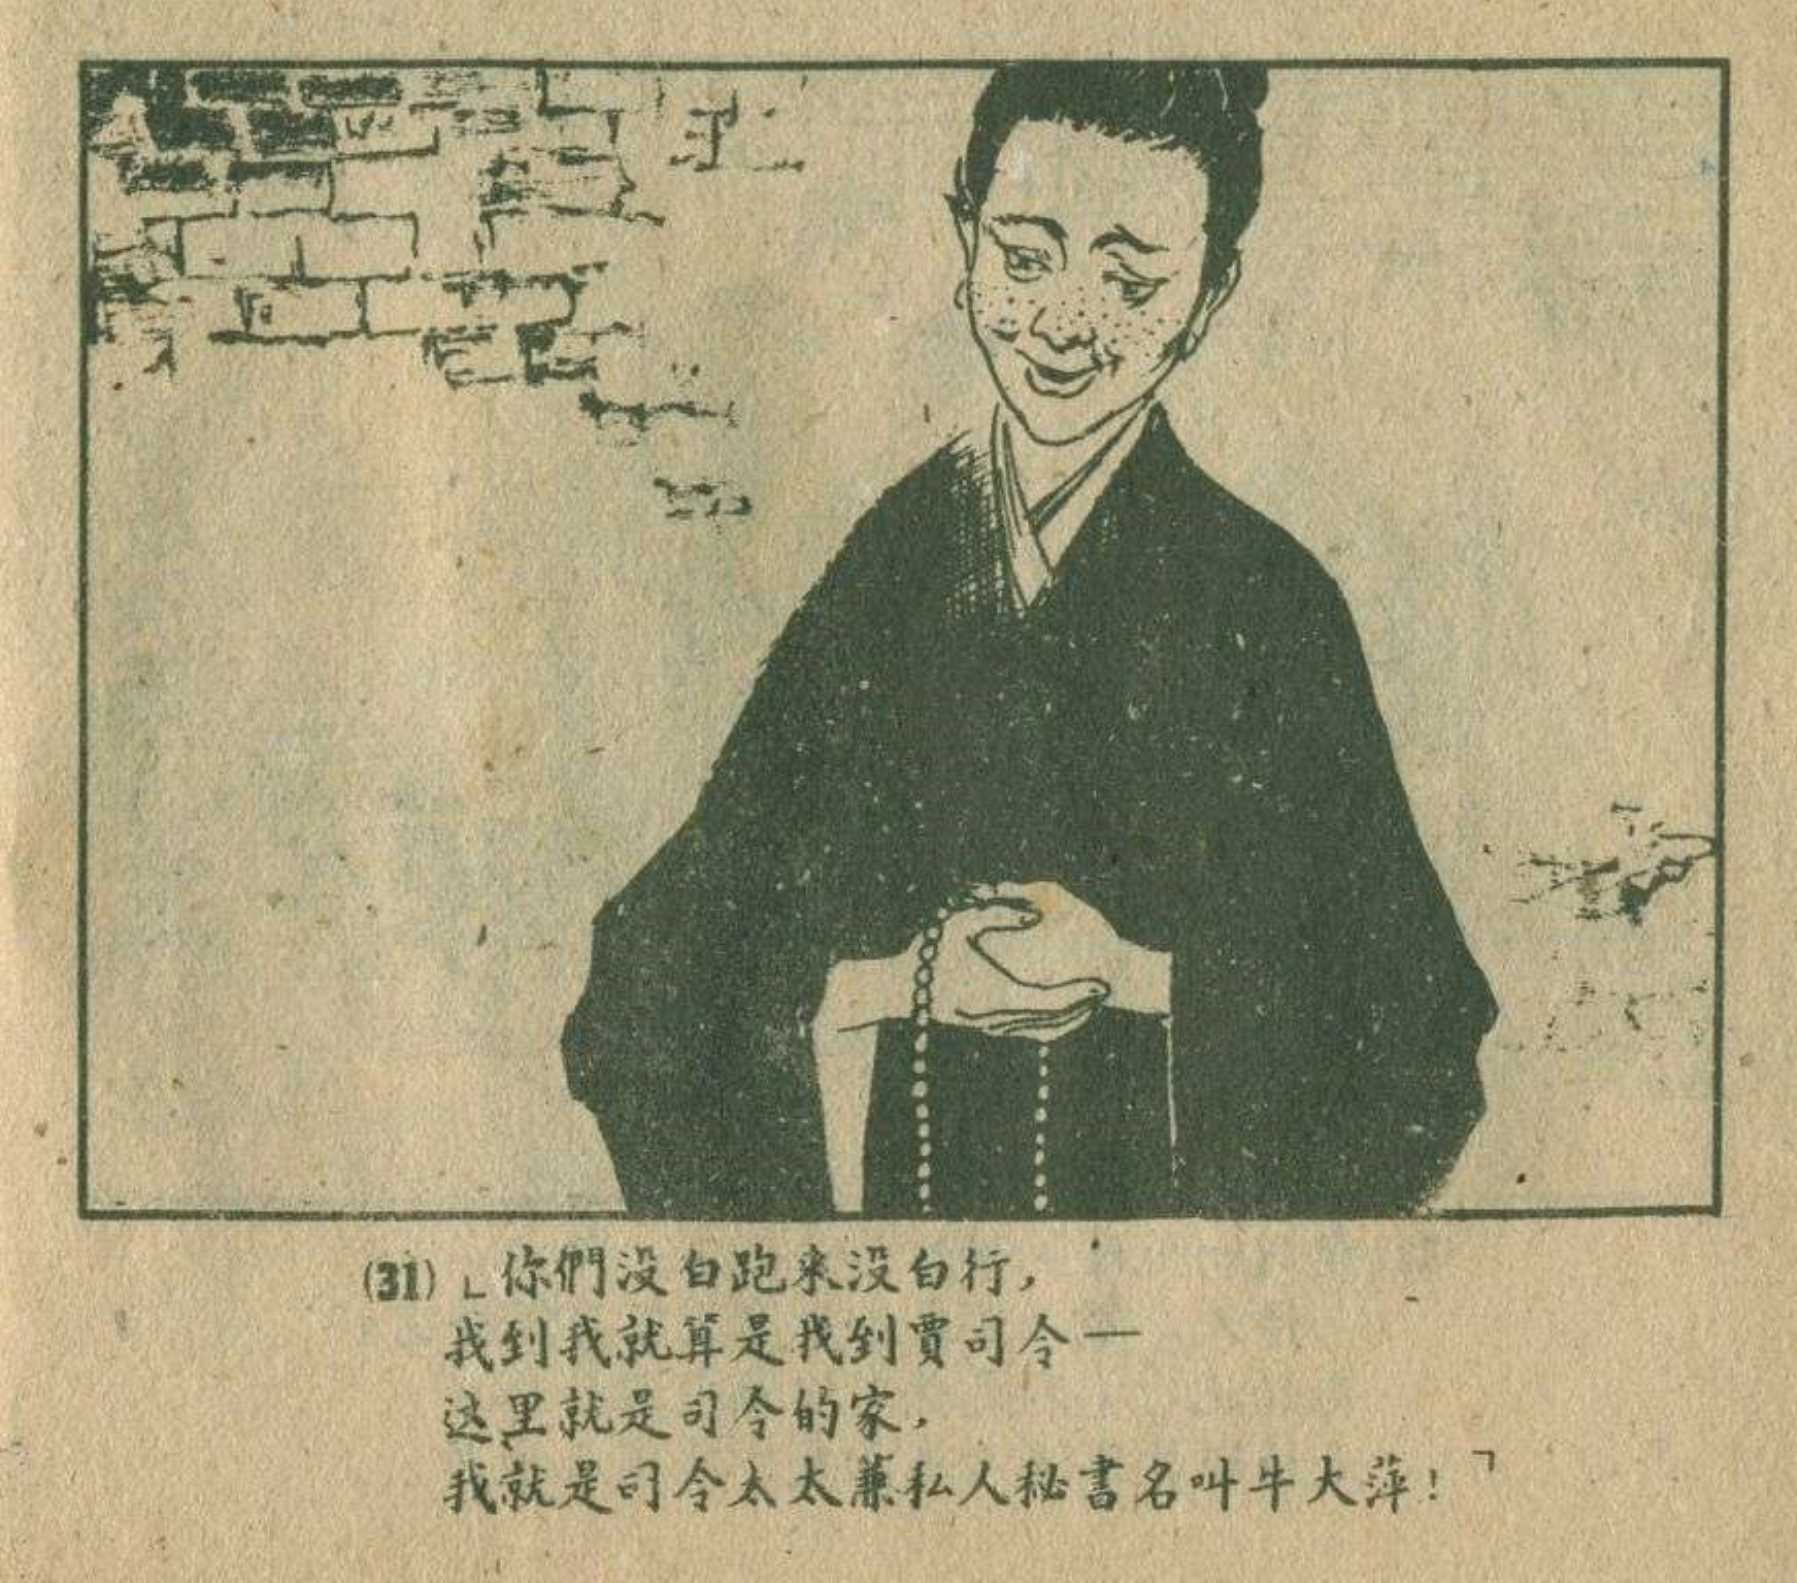 (31)「你們没白跑来没白行，
我到我就算是找到賈司令—
这里就是司令的家，
我就是司令太太兼私人秘書名叫牛大萍！」